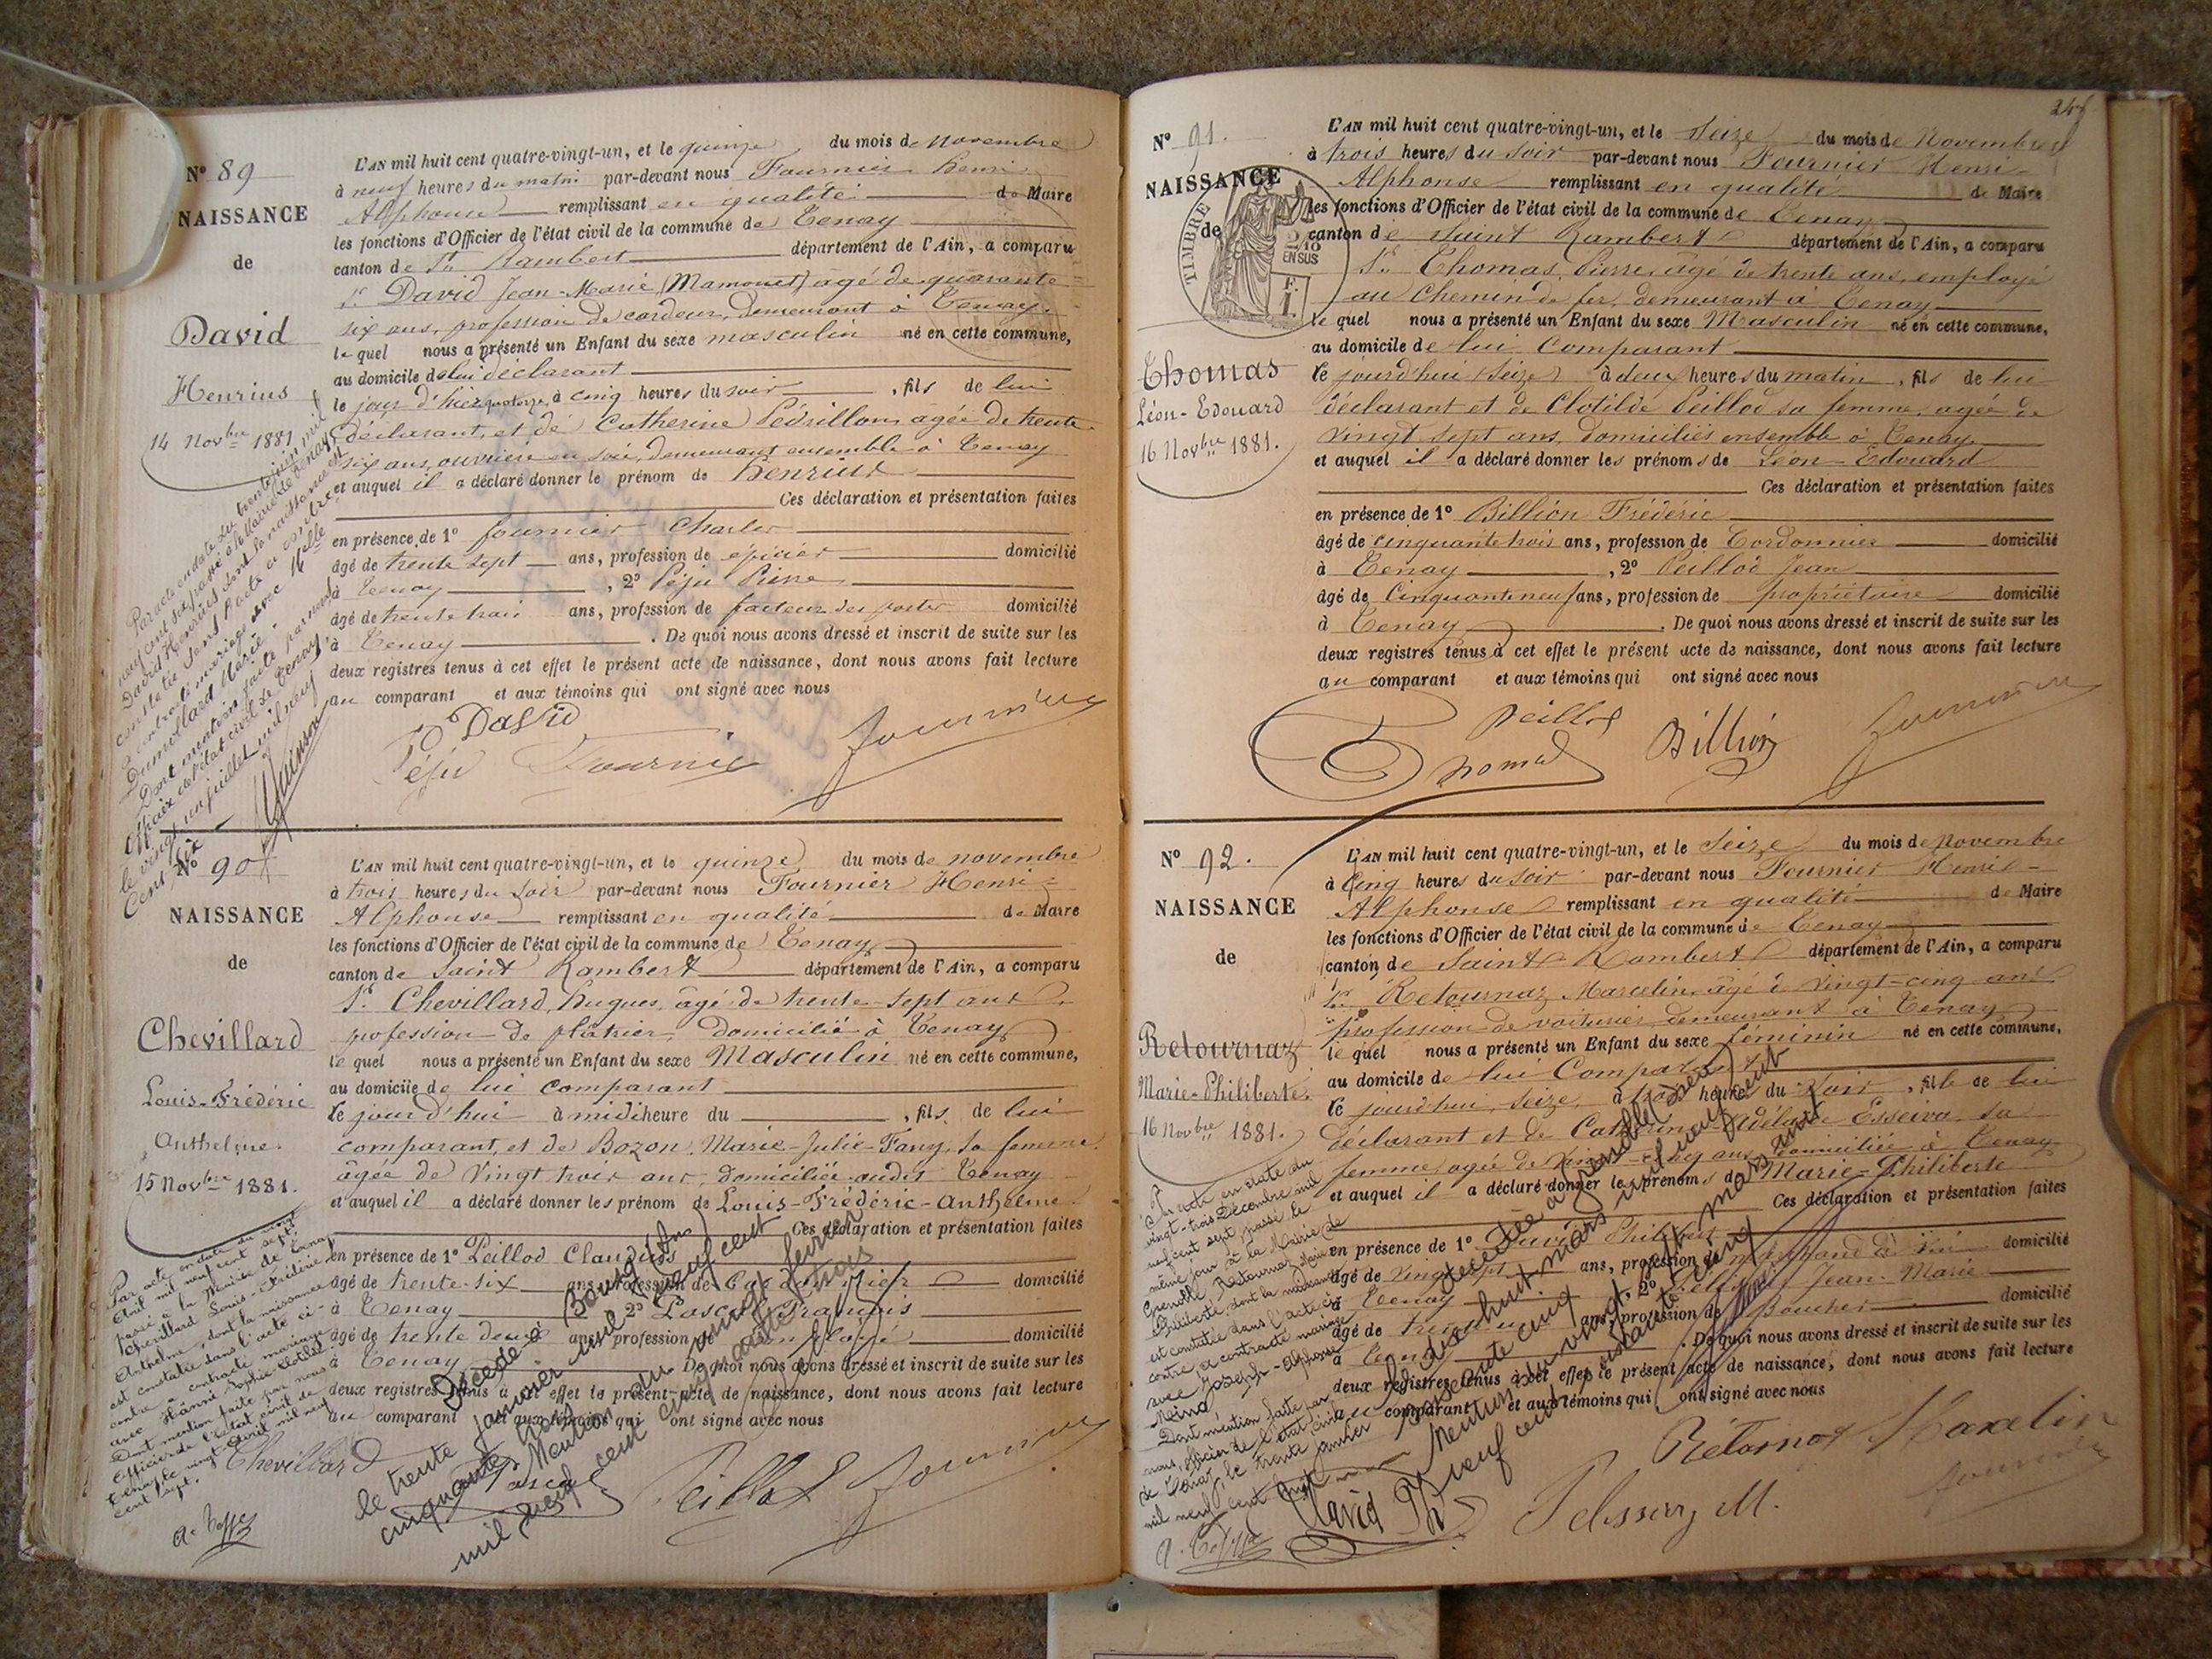 Nº 89
NAISSANCE
de
David
Henrius
14 Novbre 1881
L'AN mil huit cent quatre-vingt-un, et le quinze du mois de novembre
à neuf heures du matin par-devant nous Fournier Henri
Alphonse remplissant en qualité de Maire
les fonctions d'Officier de l'état civil de la commune de Tenay
canton de St Rambert département de l'Ain, a comparu
Sr David Jean-Marie (Mamonet) âgé de quarante
six ans, profession de cardeur, demeurant à Tenay.
lequel nous a présenté un Enfant du sexe masculin né en cette commune,
au domicile de lui déclarant
le jour d'hier quatorze à cinq heures du soir, fils de lui
déclarant, et de Catherine agée de trente
six ans, ouvrière en soie, demeurant ensemble à Tenay
et auquel il a déclaré donner le prénom de Henrius
Ces déclaration et présentation faites
en présence de 1º fournier Charles
âgé de trente sept ans, profession de épicier domicilié
à Tenay, 2º Péju Pierre
âgé de trente trois ans, profession de facteur des postes domicilié
à Tenay. De quoi nous avons dressé et inscrit de suite sur les
deux registres tenus à cet effet le présent acte de naissance, dont nous avons fait lecture
au comparant et aux témoins qui ont signé avec nous
David
Péju Fournier Fournier
Par acte en date du trente juin mil
neuf cent six passé à la Mairie de Tenay
David Henrius dont la naissance est
constatée dans l'acte ci contre,
a contracté mariage avec Melle
Dumollard Marie.
Dont mention faite par nous
Officier de l'état civil de Tenay
le vingt un juillet mil neuf
cent six
Nº 90
NAISSANCE
de
Chevillard
Louis-Frédéric
Anthelme.
15 Novbre 1881.
L'AN mil huit cent quatre-vingt-un, et le quinze du mois de novembre
à trois heures du soir par-devant nous Fournier Henri
Alphonse remplissant en qualité de Maire
les fonctions d'Officier de l'état civil de la commune de Tenay
canton de Saint Rambert département de l'Ain, a comparu
Sr Chevillard, Hugues, âgé de trente-sept ans
profession de plâtrier, domicilié à Tenay
lequel nous a présenté un Enfant du sexe Masculin né en cette commune,
au domicile de lui comparant
le jourd'hui à midi heure du, fils de lui
comparant, et de Bozon, Marie-Julie-Fany, sa femme
âgée de vingt trois ans, domiciliée audit Tenay
et auquel il a déclaré donner les prénom de Louis-Frédéric-Anthelme.
Ces déclaration et présentation faites
en présence de 1º Peillod Claudius
âgé de trente-six ans, profession de domicilié
à Tenay 2º Pascal François
âgé de trente deux ans, profession de employé domicilié
à Tenay. De quoi nous avons dressé et inscrit de suite sur les
deux registres tenus à cet effet le présent acte de naissance, dont nous avons fait lecture
au comparant et aux témoins qui ont signé avec nous
Chevillard Pascal Peillod Fournier
Par acte en date du vingt
Avril mil neuf cent sept,
passé à la Mairie de Tenay
Chevillard Louis-Frédéric
Anthelme, dont la naissance
est constatée dans l'acte ci-
contre a contracté mariage
avec Sophie Clotilde
Dont mention faite par nous
Officier de l'état civil de
Tenay le vingt Avril mil neuf
cent sept.
Décédé à Bourg (Ain)
le trente janvier mil neuf cent
cinquante trois
Mention du vingt février
mil neuf cent cinquante trois
248
Nº 91.
NAISSANCE
de
TIMBRE
2/10
EN SUS
F.
1.
Thomas
Léon-Edouard
16 Novbre 1881.
L'AN mil huit cent quatre-vingt-un, et le Seize du mois de Novembre
à trois heures du soir par-devant nous Fournier Henri
Alphonse remplissant en qualité de Maire
les fonctions d'Officier de l'état civil de la commune de Tenay
canton de Saint Rambert département de l'Ain, a comparu
Sr Thomas, Pierre, âgé de trente ans, employé
au Chemin de fer, demeurant à Tenay
lequel nous a présenté un Enfant du sexe Masculin né en cette commune,
au domicile de lui Comparant
le jourd'hui (seize) à deux heures du matin, fils de lui
déclarant et de Clotilde Peillod sa femme, agée de
vingt sept ans, domiciliés ensemble à Tenay
et auquel il a déclaré donner les prénoms de Léon-Edouard
Ces déclaration et présentation faites
en présence de 1º Billion Frédéric
âgé de cinquante trois ans, profession de Cordonnier domicilié
à Tenay, 2º Peillod Jean
âgé de Cinquante neuf ans, profession de propriétaire domicilié
à Tenay. De quoi nous avons dressé et inscrit de suite sur les
deux registres tenus à cet effet le présent acte de naissance, dont nous avons fait lecture
au comparant et aux témoins qui ont signé avec nous
Peillod
Thomas Billion Fournier
Nº 92.
NAISSANCE
de
Retournaz
Marie-Philiberte.
16 Novbre 1881.
L'AN mil huit cent quatre-vingt-un, et le Seize du mois de Novembre
à Cinq heures du soir par-devant nous Fournier Henri
Alphonse remplissant en qualité de Maire
les fonctions d'Officier de l'état civil de la commune de Tenay
canton de Saint Rambert département de l'Ain, a comparu
Sr Retournaz Marcelin, âgé de vingt-cinq ans
profession de voiturier demeurant à Tenay
lequel nous a présenté un Enfant du sexe féminin né en cette commune,
au domicile de lui Comparant
le jourd'hui, seize, à trois heures du soir, fille de lui
déclarant et de Catherine-Adélaïde Esseiva, sa
femme, agée de vingt-cinq ans domiciliée à Tenay
et auquel il a déclaré donner les prénoms de Marie-Philiberte
Ces déclaration et présentation faites
en présence de 1º David Philibert
âgé de vingt sept ans, profession de marchand domicilié
à Tenay, 2º Jean-Marie
âgé de ans, profession de Boucher domicilié
à Tenay. De quoi nous avons dressé et inscrit de suite sur les
deux registres tenus à cet effet le présent acte de naissance, dont nous avons fait lecture
au comparant et aux témoins qui ont signé avec nous
Rétornaz Marxelin
David Ph Pelissery M. Fournier
Par acte en date du
vingt-trois Décembre mil
neuf cent sept passé le
même jour à la Mairie de
Grenoble, Retournaz Marie
Philiberte, dont la naissance
est constatée dans l'acte ci-
contre a contracté mariage
avec Joseph-Alphonse
Dont mention faite par
nous, officier de l'état civil
de Tenay le trente janvier
mil neuf cent huit
Décédée à Grenoble (Isère)
le dix huit mars mil neuf cent
soixante cinq
Mention du vingt six mars mil
neuf cent soixante cinq